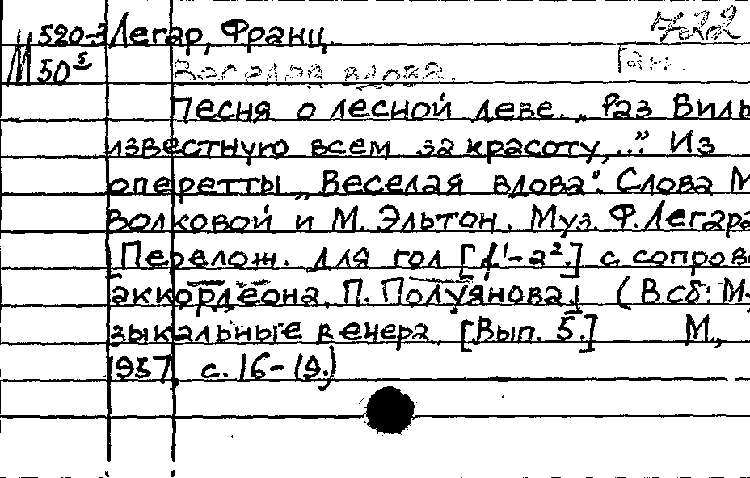 М 520-3 Легар, Франц. 722
50⁵ Веселая вдова. Ган.
Песня о лесной деве. „Раз Виль
известную всем за красоту,..." Из
оперетты „Веселая вдова". Слова М
Волковой и М. Эльтон. Муз. Ф. Легара
[Перелож. для гол [f¹-a².] с сопрово
аккордеона. П. Полуянова.] (В сб: Му
зыкальные вечера. [Вып. 5.] М.,
1957, с. 16-19.)